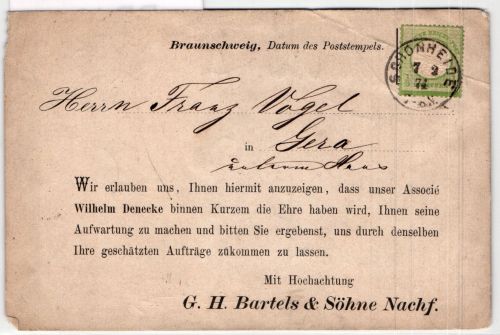 Braunschweig, Datum des Poststempels.
SCHÖNHEIDE
7 3
74
Herrn Franz Vogel
in Gera
Wir erlauben uns, Ihnen hiermit anzuzeigen, dass unser Associé
Wilhelm Denecke binnen Kurzem die Ehre haben wird, Ihnen seine
Aufwartung zu machen und bitten Sie ergebenst, uns durch denselben
Ihre geschätzten Aufträge zukommen zu lassen.
Mit Hochachtung
G. H. Bartels & Söhne Nachf.